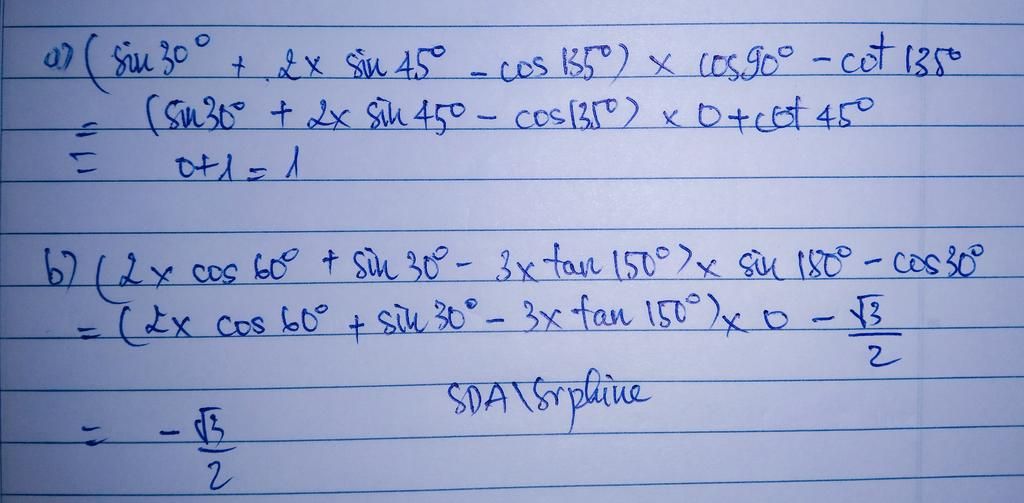 a) (sin 30° + 2x sin 45° - cos 135°) x cos 90° - cot 135°
= (sin 30° + 2x sin 45° - cos 135°) x 0 + cot 45°
= 0+1 = 1
b) (2x cos 60° + sin 30° - 3x tan 150°) x sin 180° - cos 30°
= (2x cos 60° + sin 30° - 3x tan 150°) x 0 - √3/2
= -√3/2